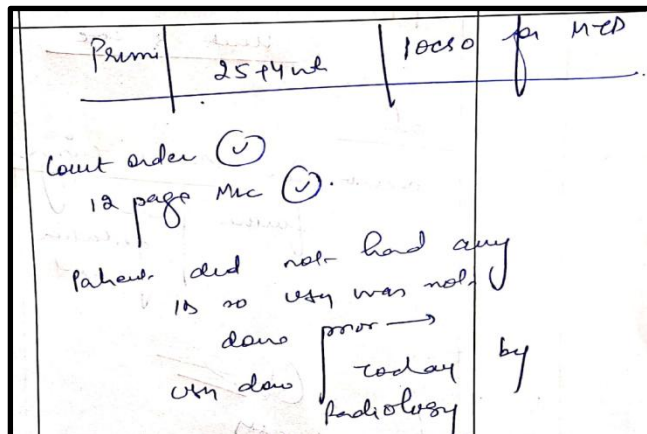 Primi | 25+4wk | POCSO for MTP
Court order ✓
12 page MLC ✓.
Patient did not had any
ID so USG was not
done prior →
USG done today by
Radiology